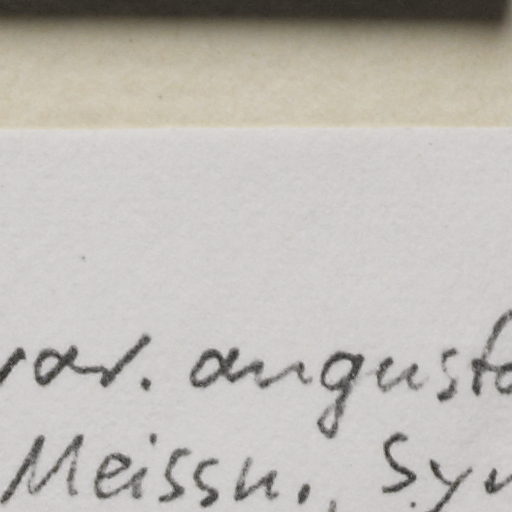 var. angusta
Meissn., Syn